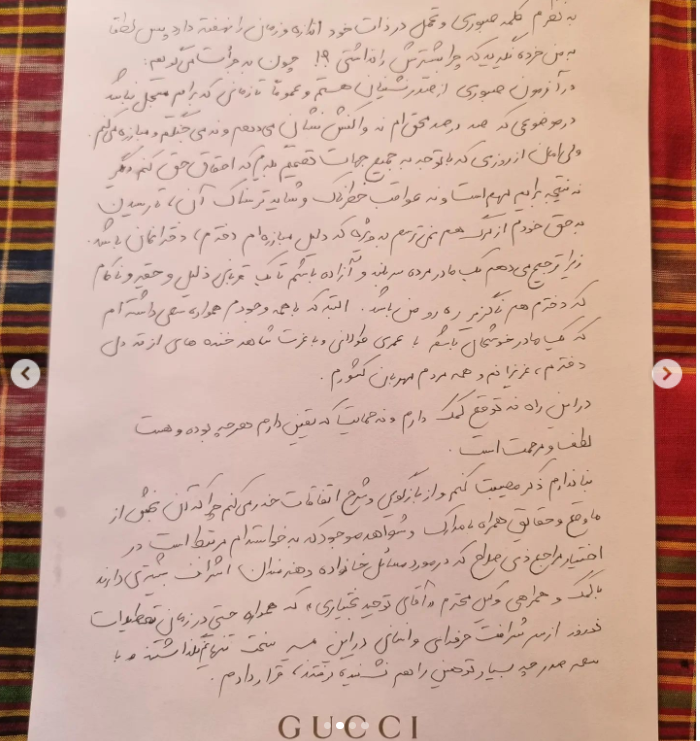 به نظرم کلمه صبوری و تحمل در ذات خود اندازه و زمانی را نهفته دارد پس لطفا
به من خرده نگیرید که چرا بیشترش را نداشتی ؟! چون به جرأت می‌گویم:
در آزمون صبوری از صدرنشینان هستم و عموماً تا زمانی که برام مسجل نباشد
در موضوعی که صد در صد محق‌ام نه واکنش نشان می‌دهم و نه می‌جنگم و مبارزه می‌کنم.
ولی امان از روزی که با توجه به جمیع جهات تصمیم بگیرم که احقاق حق کنم دیگر
نه نتیجه برایم مهم است و نه عواقب خطرناک و شاید ترسناک آن، تا رسیدن
به حق خودم از مرگ هم نمی‌ترسم به ویژه که دلیل مبارزه‌ام دخترم، دخترانمان باشد.
زیرا ترجیح می‌دهم یک مادر مرده سربلند و آزاده باشم تا یک قربانی ذلیل و حقیر و ناکام
که دخترم هم ناگزیر ره رو من باشد. البته که با همه وجودم همواره سعی داشته‌ام
که یک مادر خوشحال باشم با عمری طولانی و با عزت شاهد خنده های از ته دل
دخترم، عزیزانم و همه مردم مهربان کشورم.
در این راه نه توقع کمک دارم و نه حمایت که یقین دارم هر چه بوده و هست
لطف و مرحمت است.
بنا ندارم ذکر مصیبت کنم و از بازگویی و شرح اتفاقات حذر می‌کنم چرا که آن بخش از
ماوقع و حقایق همراه با مدارک و شواهد موجود که به خواسته‌ام مرتبط است در
اختیار مراجع ذی صلاح که در مورد مسائل خانواده و هنرمندان اشراف بیشتری دارند
با کمک و همراهی وکیل محترم «آقای توحید بختیاری» که همواره حتی در زمان تعطیلات
نوروز از سر شرافت حرفه‌ای و انسانی در این مسیر سخت تنهایم نگذاشتند و با
سعه صدر چه بسیار توهین را هم نشنیده گرفتند، قرار دادم.
GUCCI